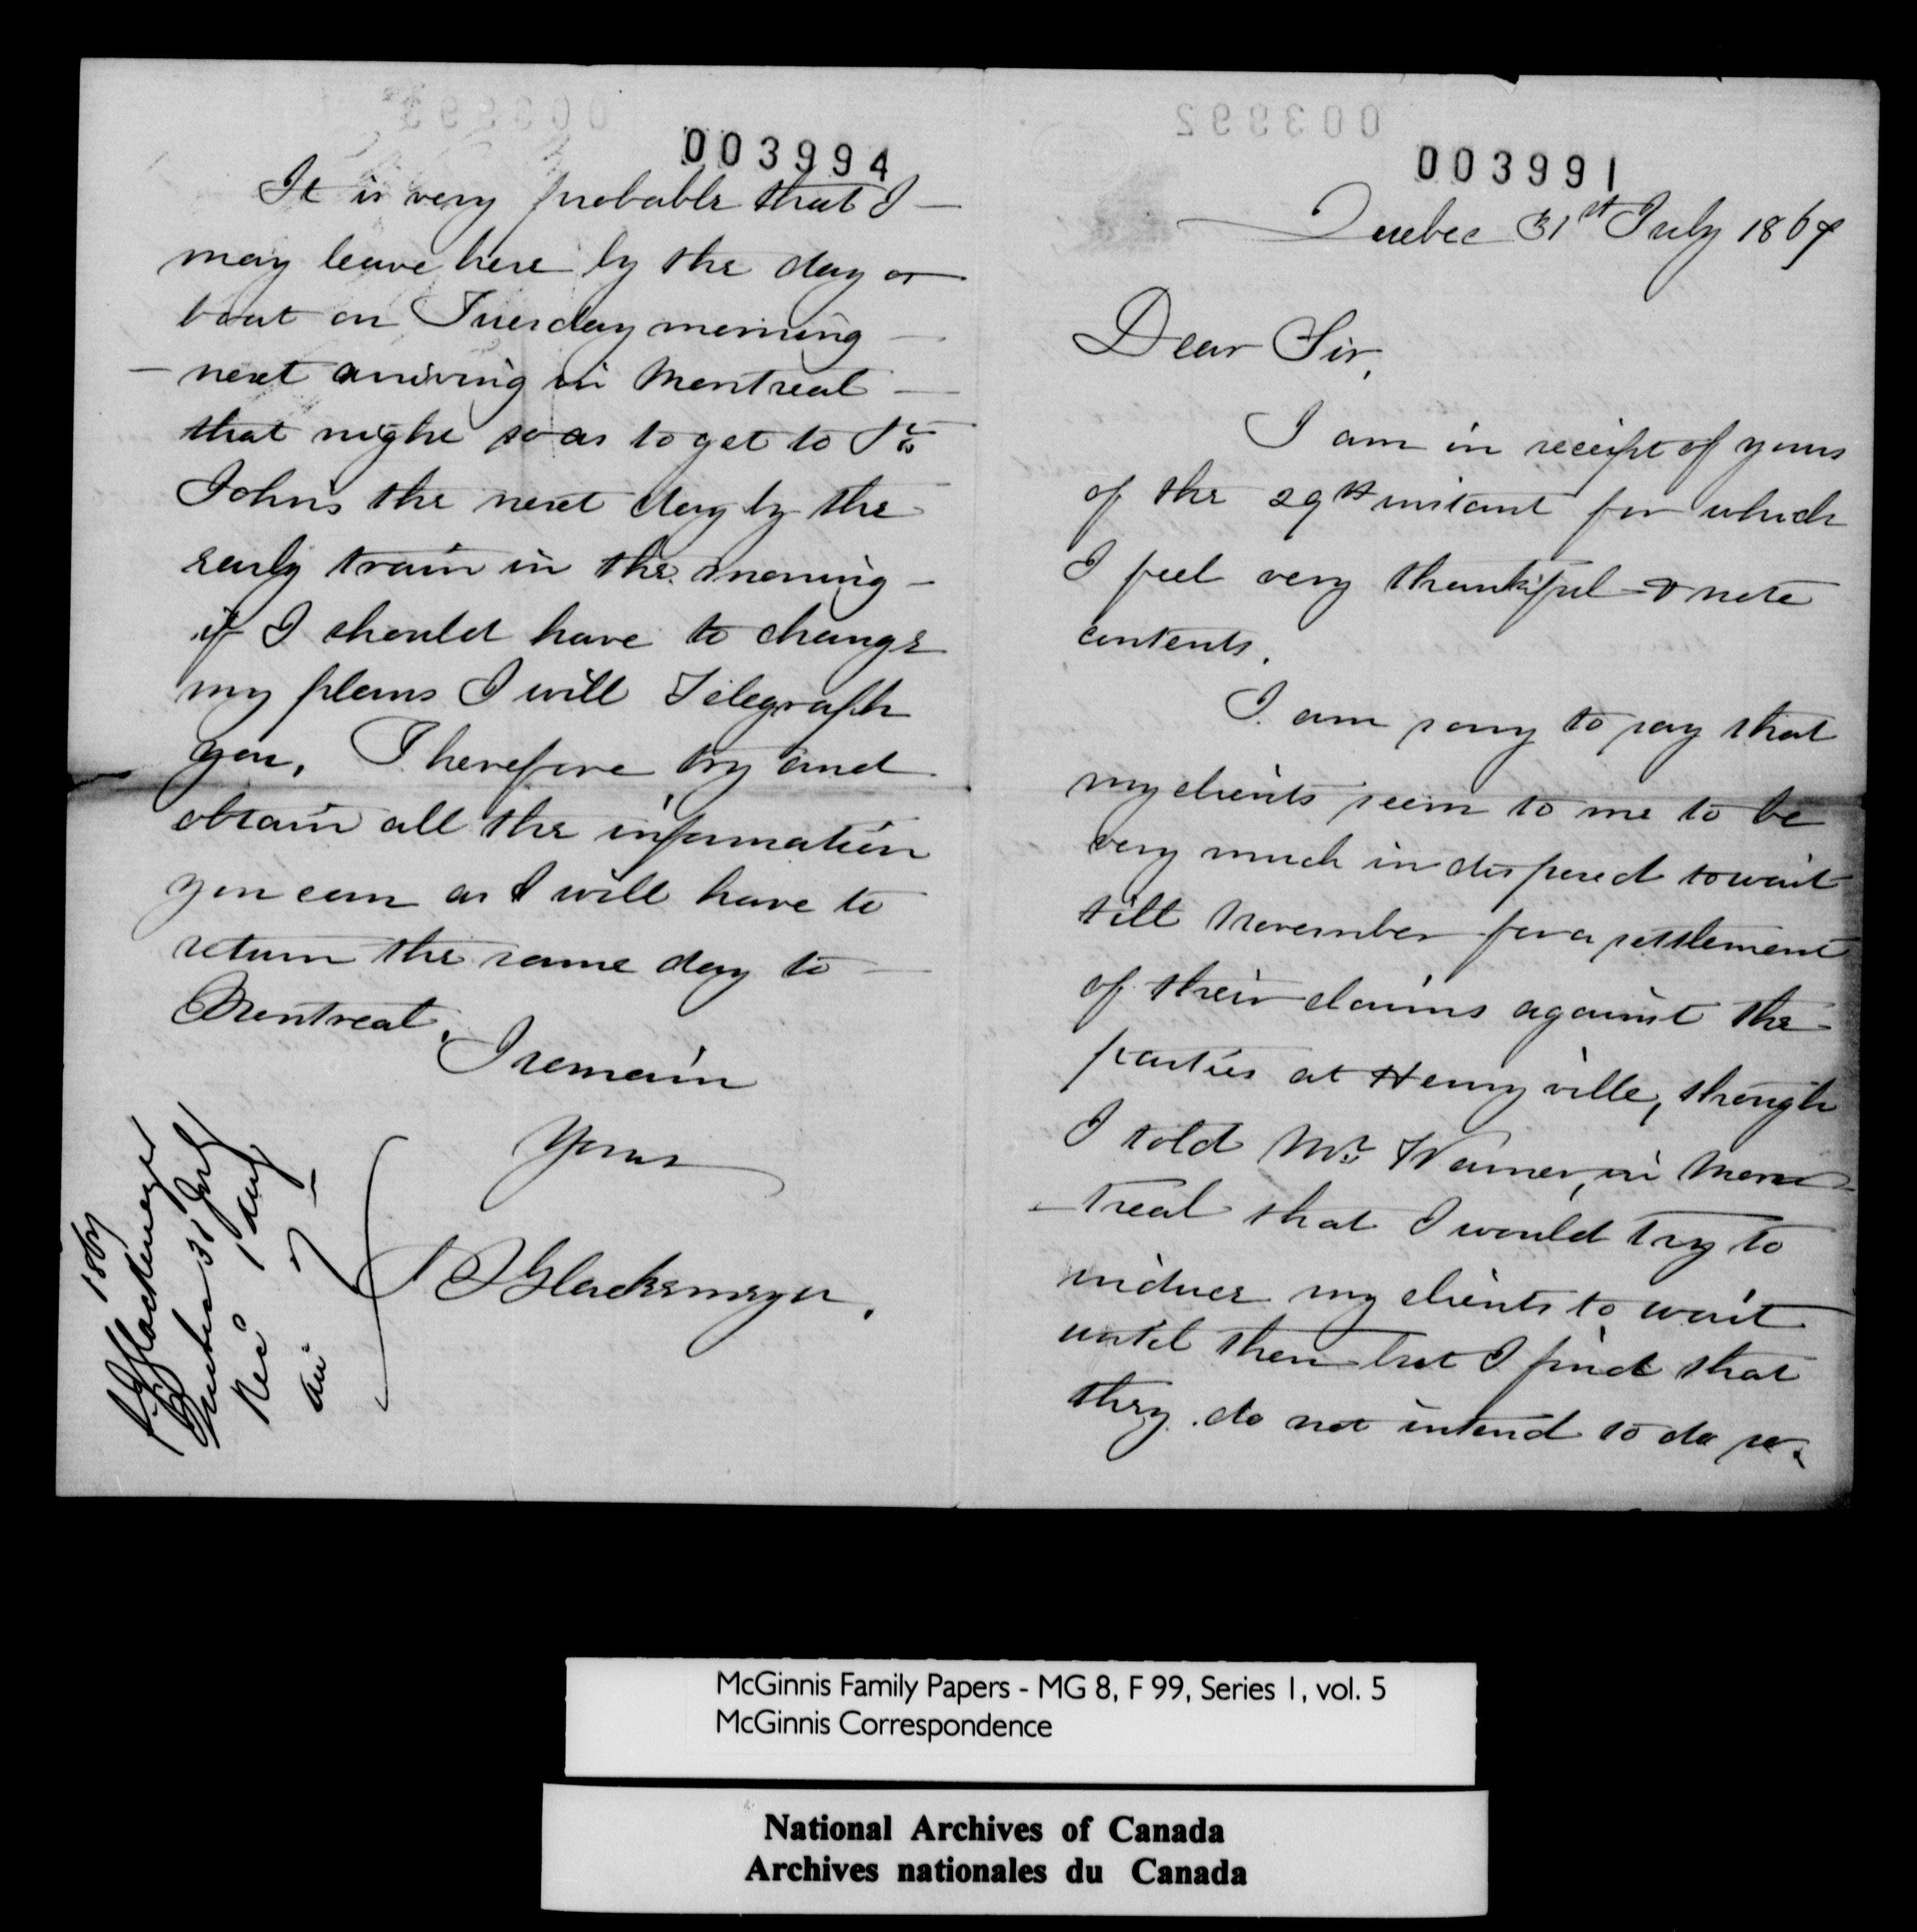 003991
Quebec 31st July 1867
Dear Sir,
I am in receipt of yours
of the 29th instant for which
I feel very thankful & note
contents.
I am sorry to say that
my clients seem to me to be
very much indisposed to wait
till November for a settlement
of their claims against the
parties at Henryville, though
I told Mr. Warner, in Mon-
-treal that I would try to
induce my clients to wait
until then but I find that
they do not intend to do so.
003994
It is very probable that I
may leave here by the day
boat on Tuesday morning
next arriving in Montreal
that night so as to get to St.
Johns the next day by the
early train in the morning
if I should have to change
my plans I will Telegraph
you, Therefore try and
obtain all the information
you can as I will have to
return the same day to
Montreal.
I remain
Yours
Glackemeyer.
1867
Glackemeyer
Quebec 31 July
Rec 1 Aug
003992
McGinnis Family Papers - MG 8, F 99, Series 1, vol. 5
McGinnis Correspondence
National Archives of Canada
Archives nationales du Canada